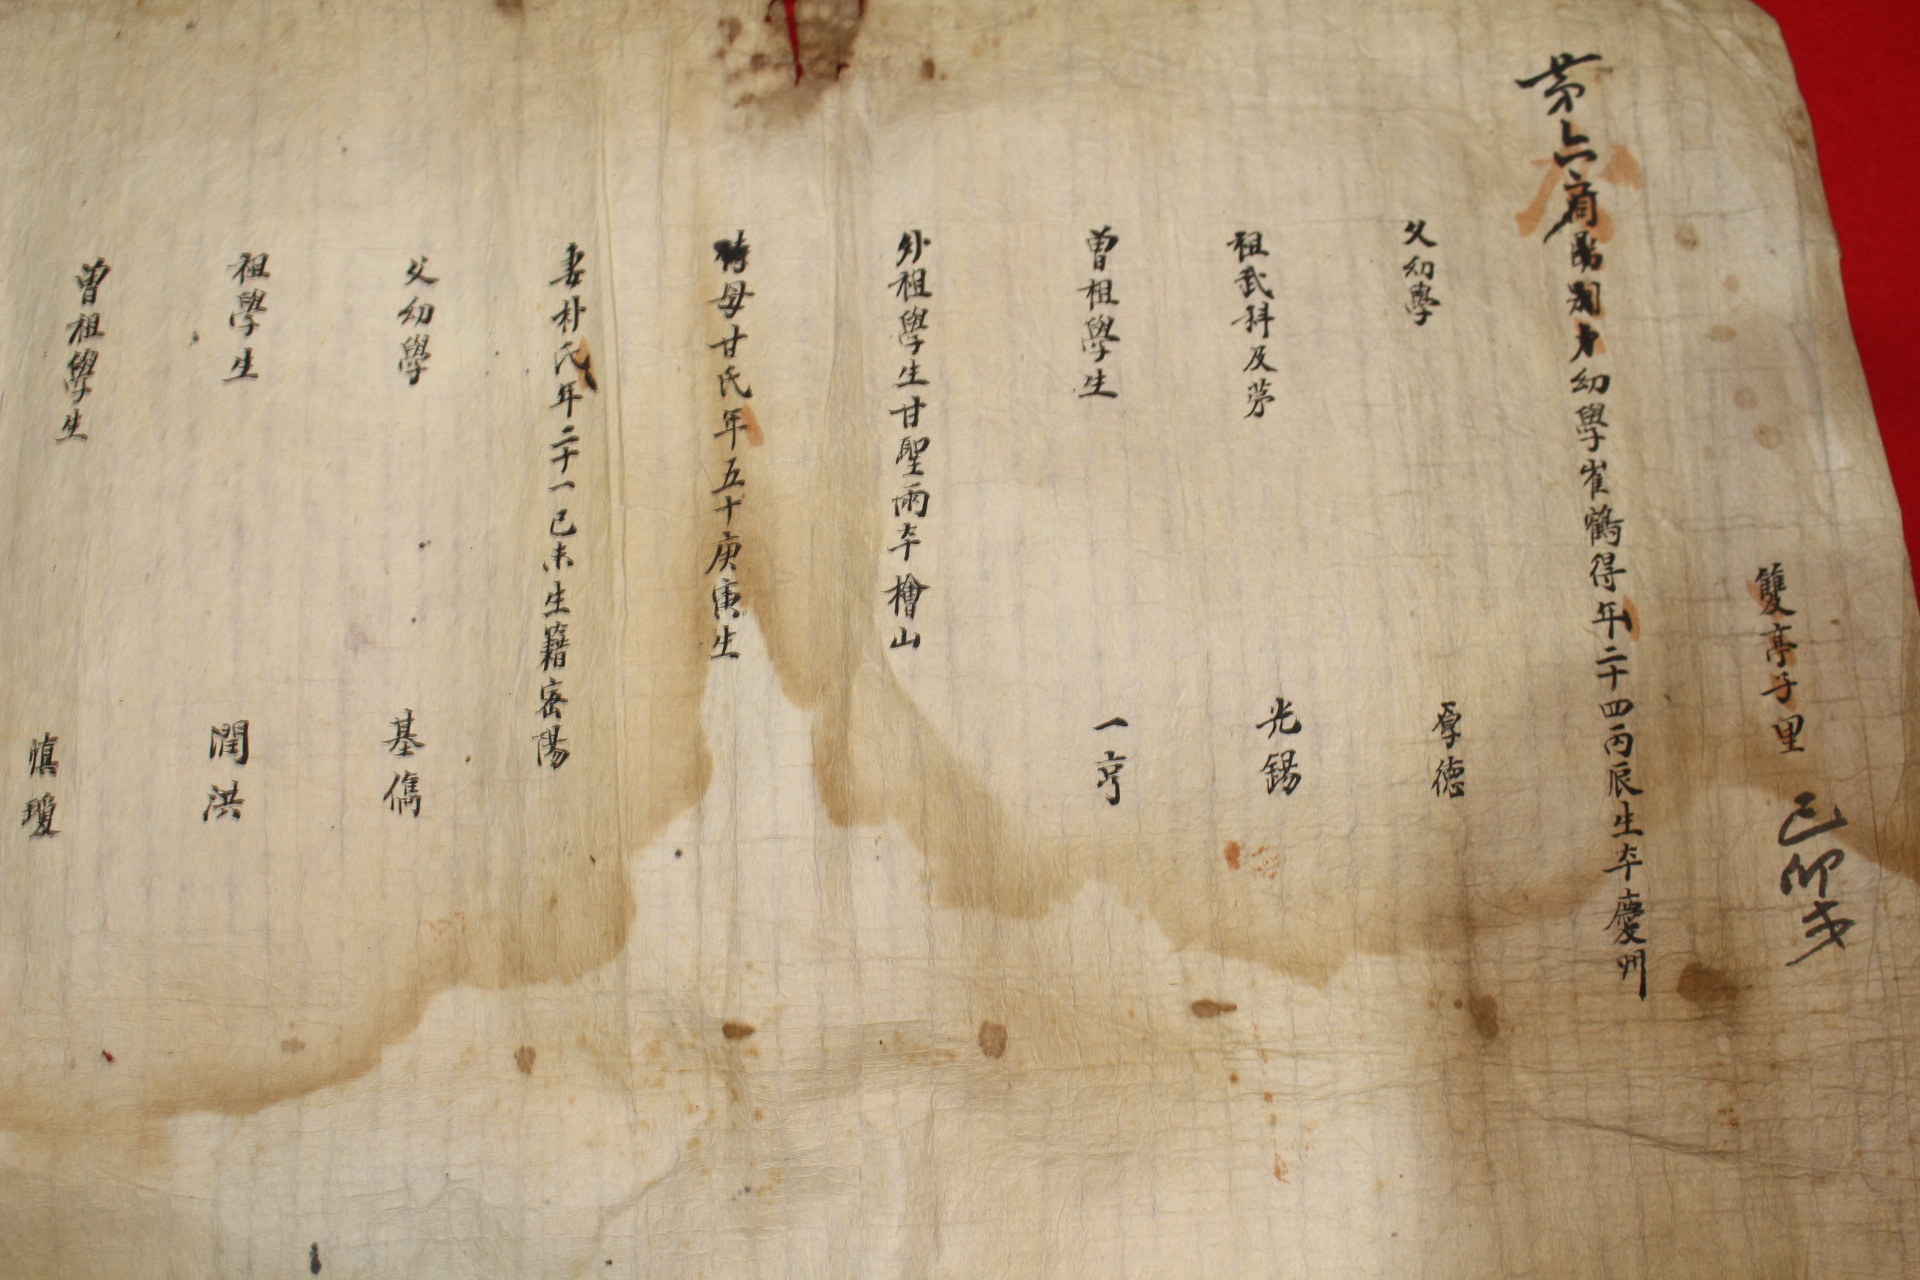 雙亭子里 己卯式
苐六 幼學崔鶴得年二十四丙辰生本慶州
父幼學 厚德
祖武科及苐 光錫
曾祖學生 一亨
外祖學生甘聖雨本檜山
母甘氏年五十庚寅生
妻朴氏年二十一己未生籍密陽
父幼學 基儁
祖學生 潤洪
曾祖學生 慎瓊